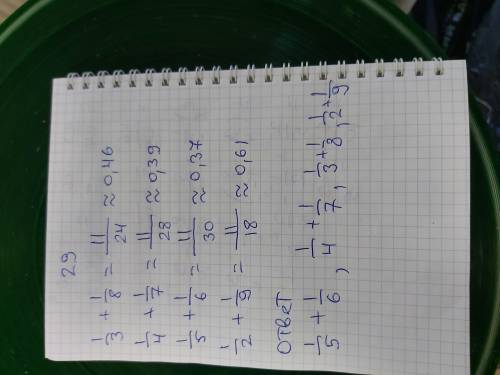 29
1/3 + 1/8 = 11/24 ≈ 0,46
1/4 + 1/7 = 11/28 ≈ 0,39
1/5 + 1/6 = 11/30 ≈ 0,37
1/2 + 1/9 = 11/18 ≈ 0,61
ответ
1/5 + 1/6 , 1/4 + 1/7 , 1/3 + 1/8 , 1/2 + 1/9